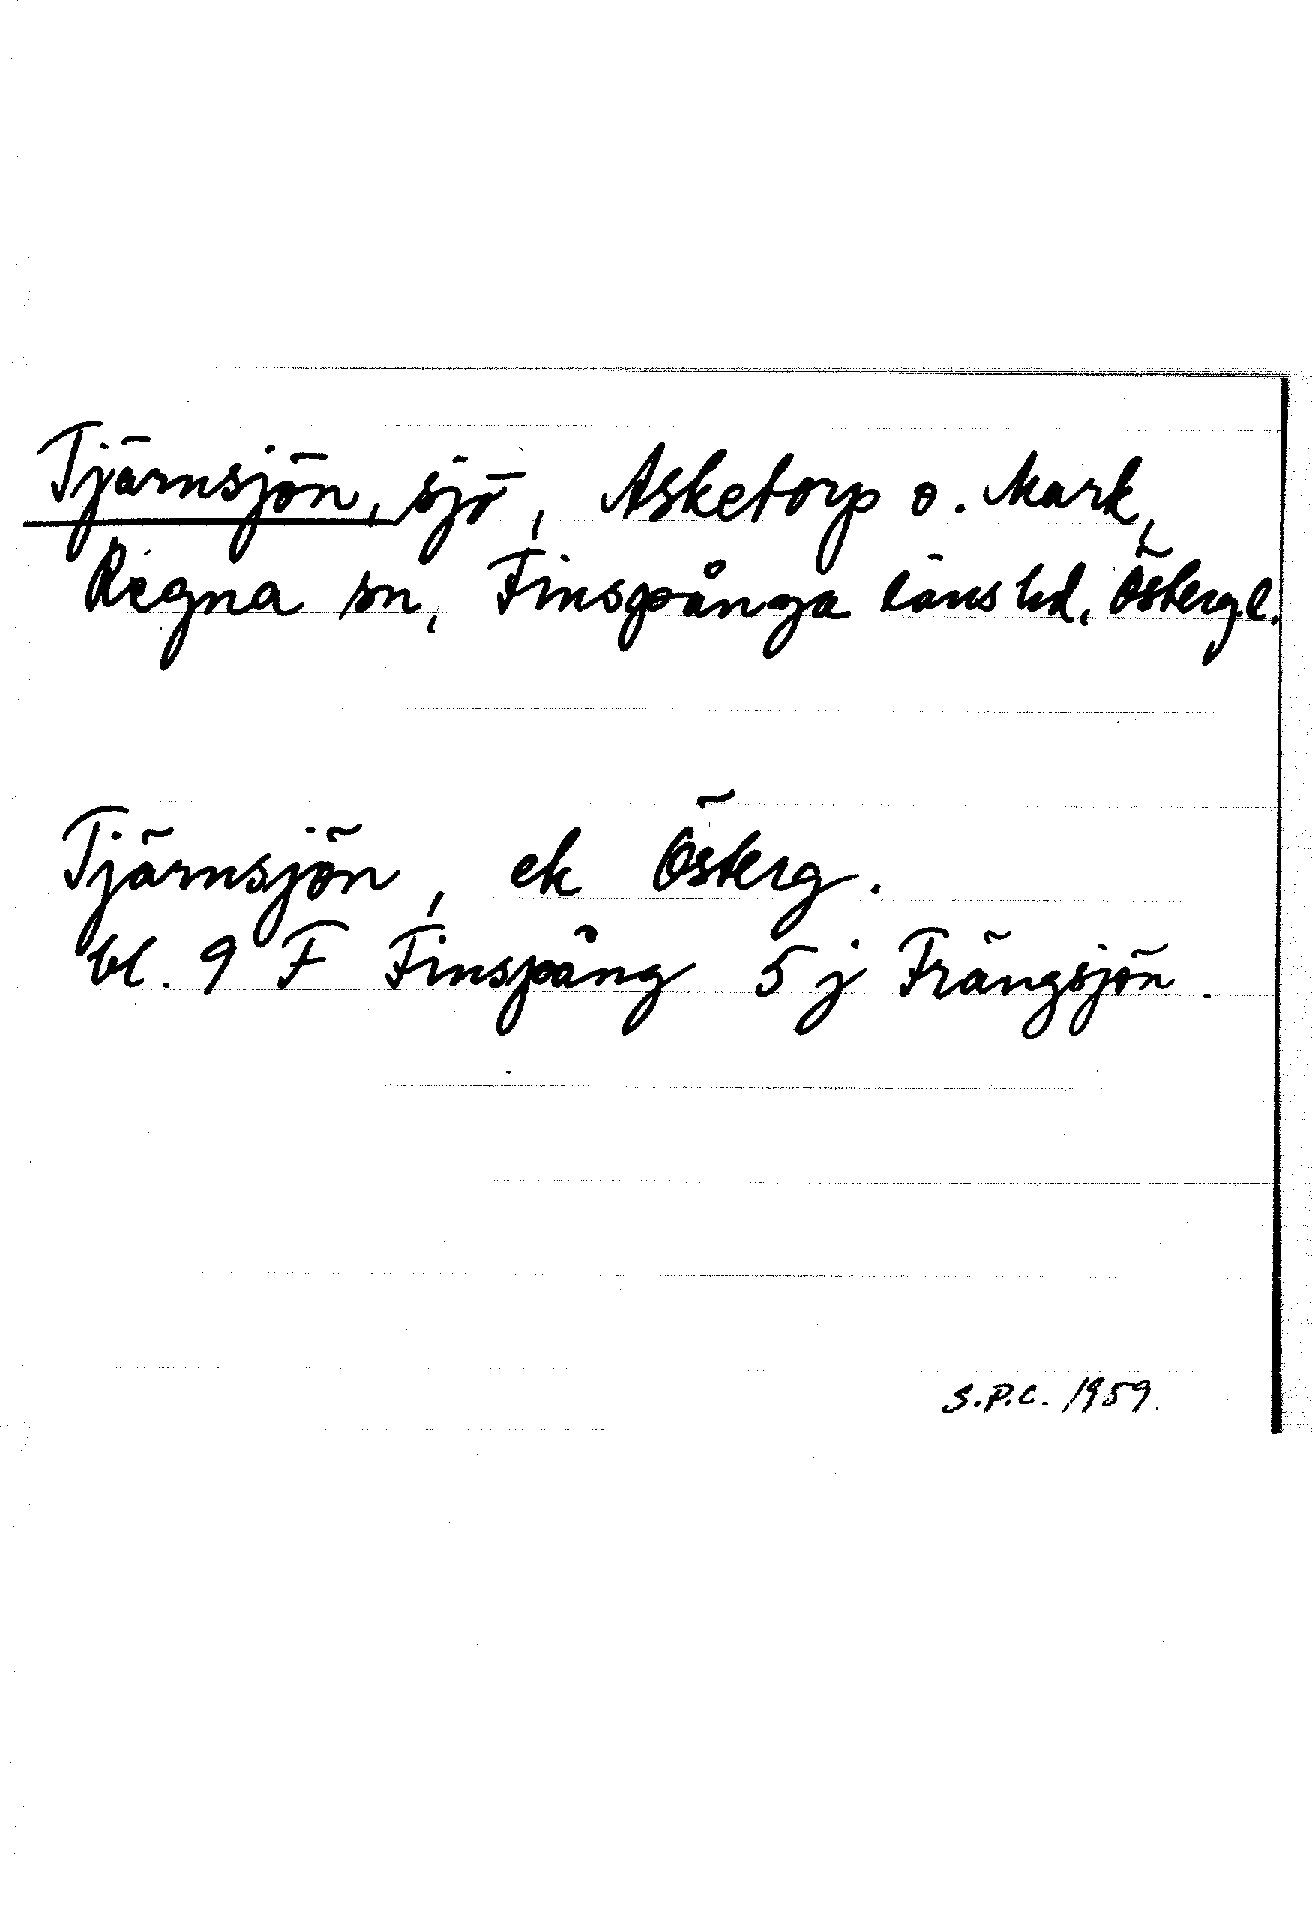 Tjärnsjön, sjö, Asketorp o. Mark,
Regna sn, Finspånga läns hd, Östergl.
Tjärnsjön, ek Österg.
bl. 9 F Finspång 5 j Frängsjön.
S.P.C. 1959.